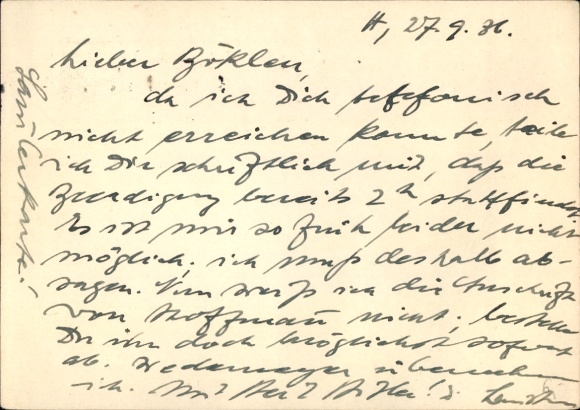 H, 27.9.36.
Lieber Böklen,
da ich Dich telefonisch
nicht erreichen konnte, teile
ich Dir schriftlich mit, daß die
Beerdigung bereits 2h stattfindet.
Es ist mir so früh leider nicht
möglich, ich muß deshalb ab-
sagen. Nun weiß ich die Anschrift
von Hoffmann nicht; bestelle
Du ihn doch möglichst sofort
ab. Wedemeyer übernehme
ich. Mit